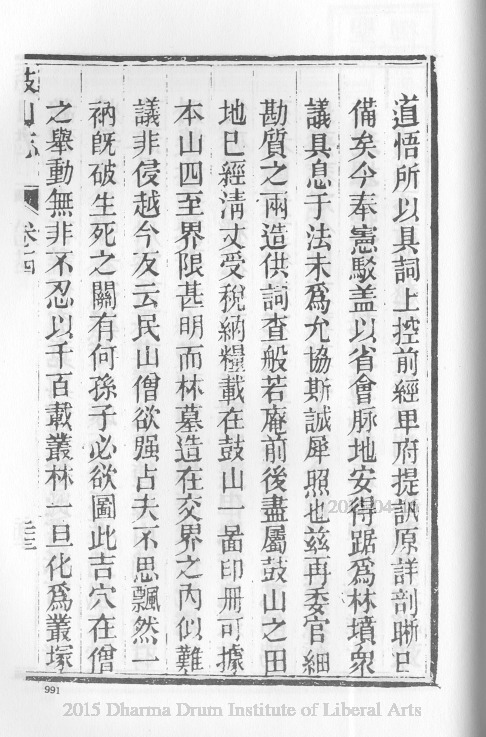 道悟所以具詞上控前經卑府提訊原詳剖晰已
備矣今奉憲駁盖以省會脉地安得踞爲林墳衆
議具息于法未爲允協斯誠犀照也兹再委官細
勘質之兩造供詞查般若庵前後盡屬鼓山之田
地已經清丈受稅納糧載在鼓山一啚印冊可據
本山四至界限甚明而林墓造在交界之內似難
議非侵越今反云民山僧欲强占夫不思飄然一
衲旣破生死之關有何孫子必欲圖此吉穴在僧
之舉動無非不忍以千百載叢林一旦化爲叢塚
鼓山志
卷十四
991
2015 Dharma Drum Institute of Liberal Arts